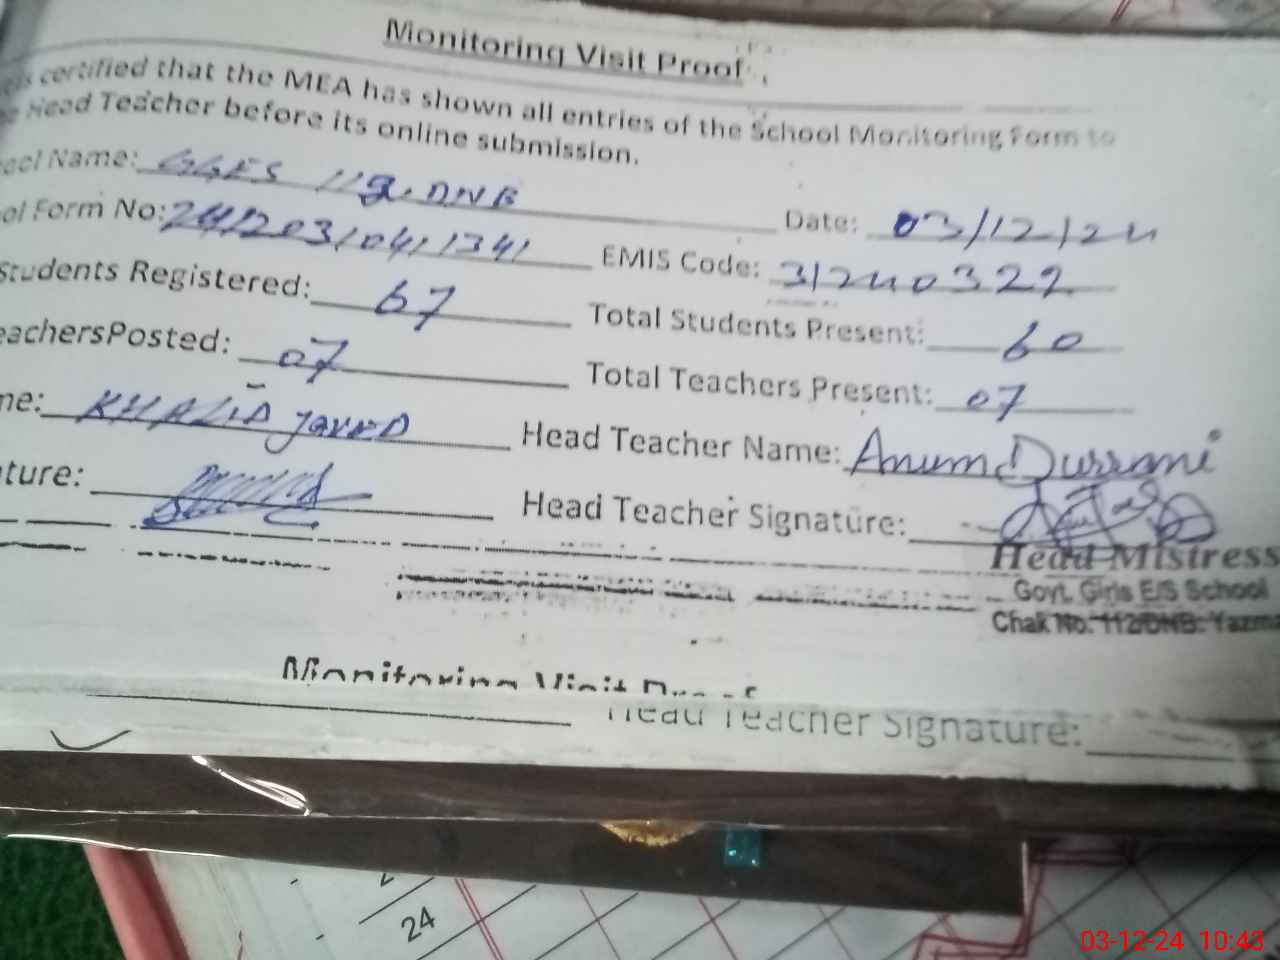 Monitoring Visit Proof
is certified that the MEA has shown all entries of the School Monitoring Form to
Head Teacher before its online submission.
ool Name: GGES 112.DNB
Date: 03/12/24
ol Form No: 241203/04/1341
EMIS Code: 31240322
Students Registered: 67
Total Students Present: 60
eachersPosted: 07
Total Teachers Present: 07
me: KHALID JAVED
Head Teacher Name: Anum Durrani
ture:
Head Teacher Signature:
Head Mistress
Govt. Girls E/S School
Chak No. 112/DNB. Yazma
Monitoring Visit Proof
Head Teacher Signature:
24
03-12-24 10:43